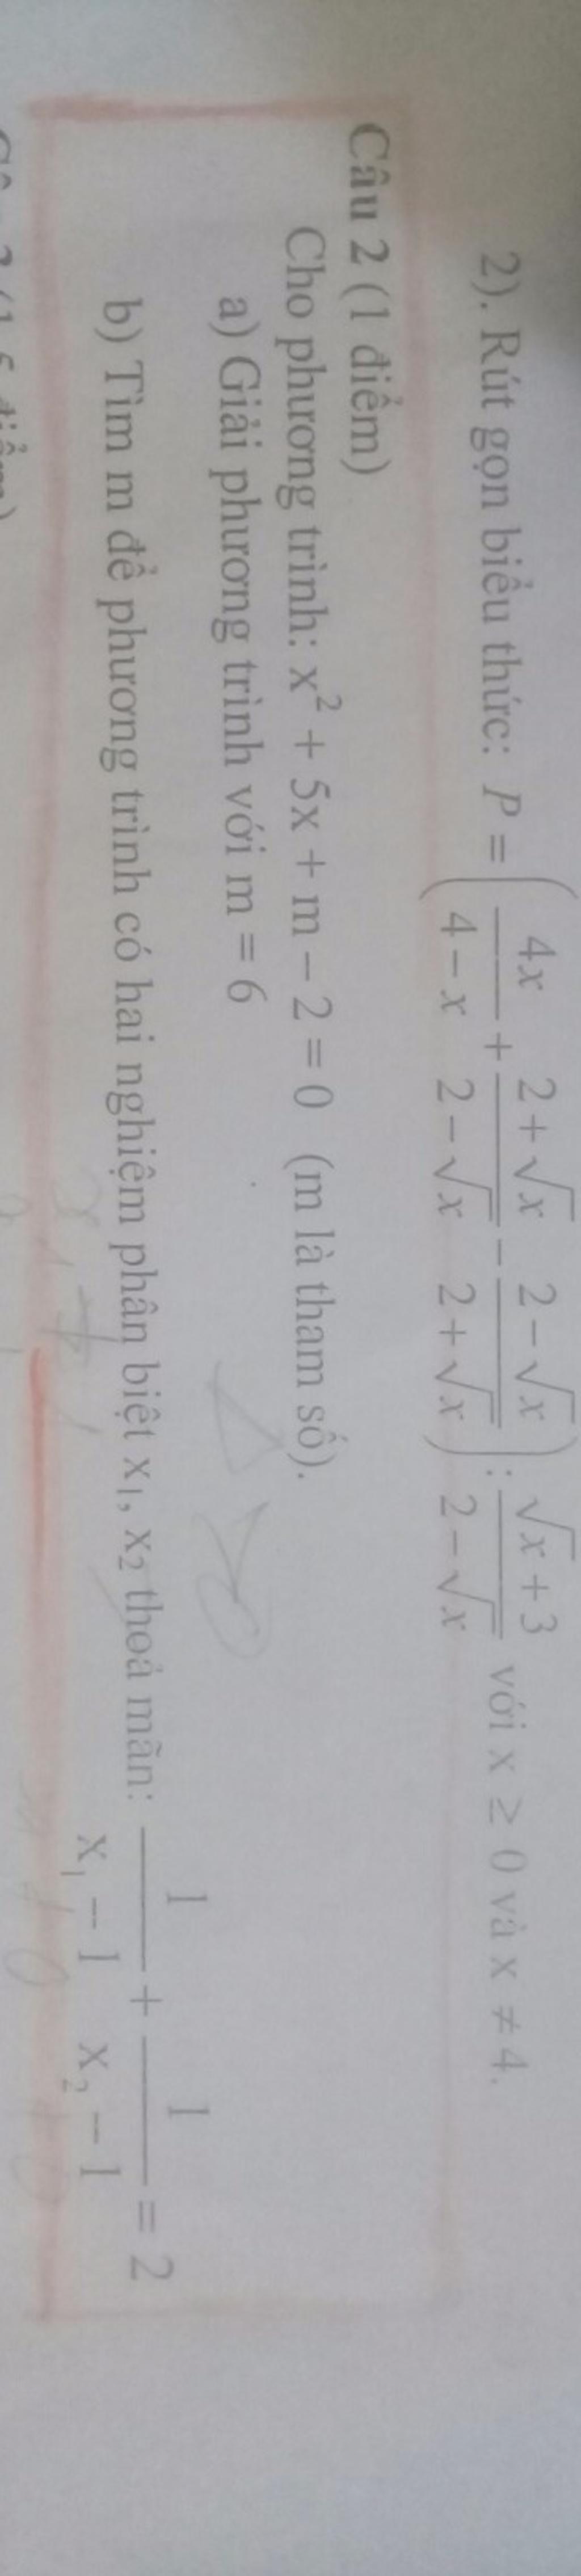 2). Rút gọn biểu thức: P = (4x/(4−x) + (2+√x)/(2−√x) − (2−√x)/(2+√x)) : (√x+3)/(2−√x) với x ≥ 0 và x ≠ 4.
Câu 2 (1 điểm)
Cho phương trình: x² + 5x + m − 2 = 0 (m là tham số).
a) Giải phương trình với m = 6
b) Tìm m để phương trình có hai nghiệm phân biệt x₁, x₂ thoả mãn: 1/(x₁ − 1) + 1/(x₂ − 1) = 2